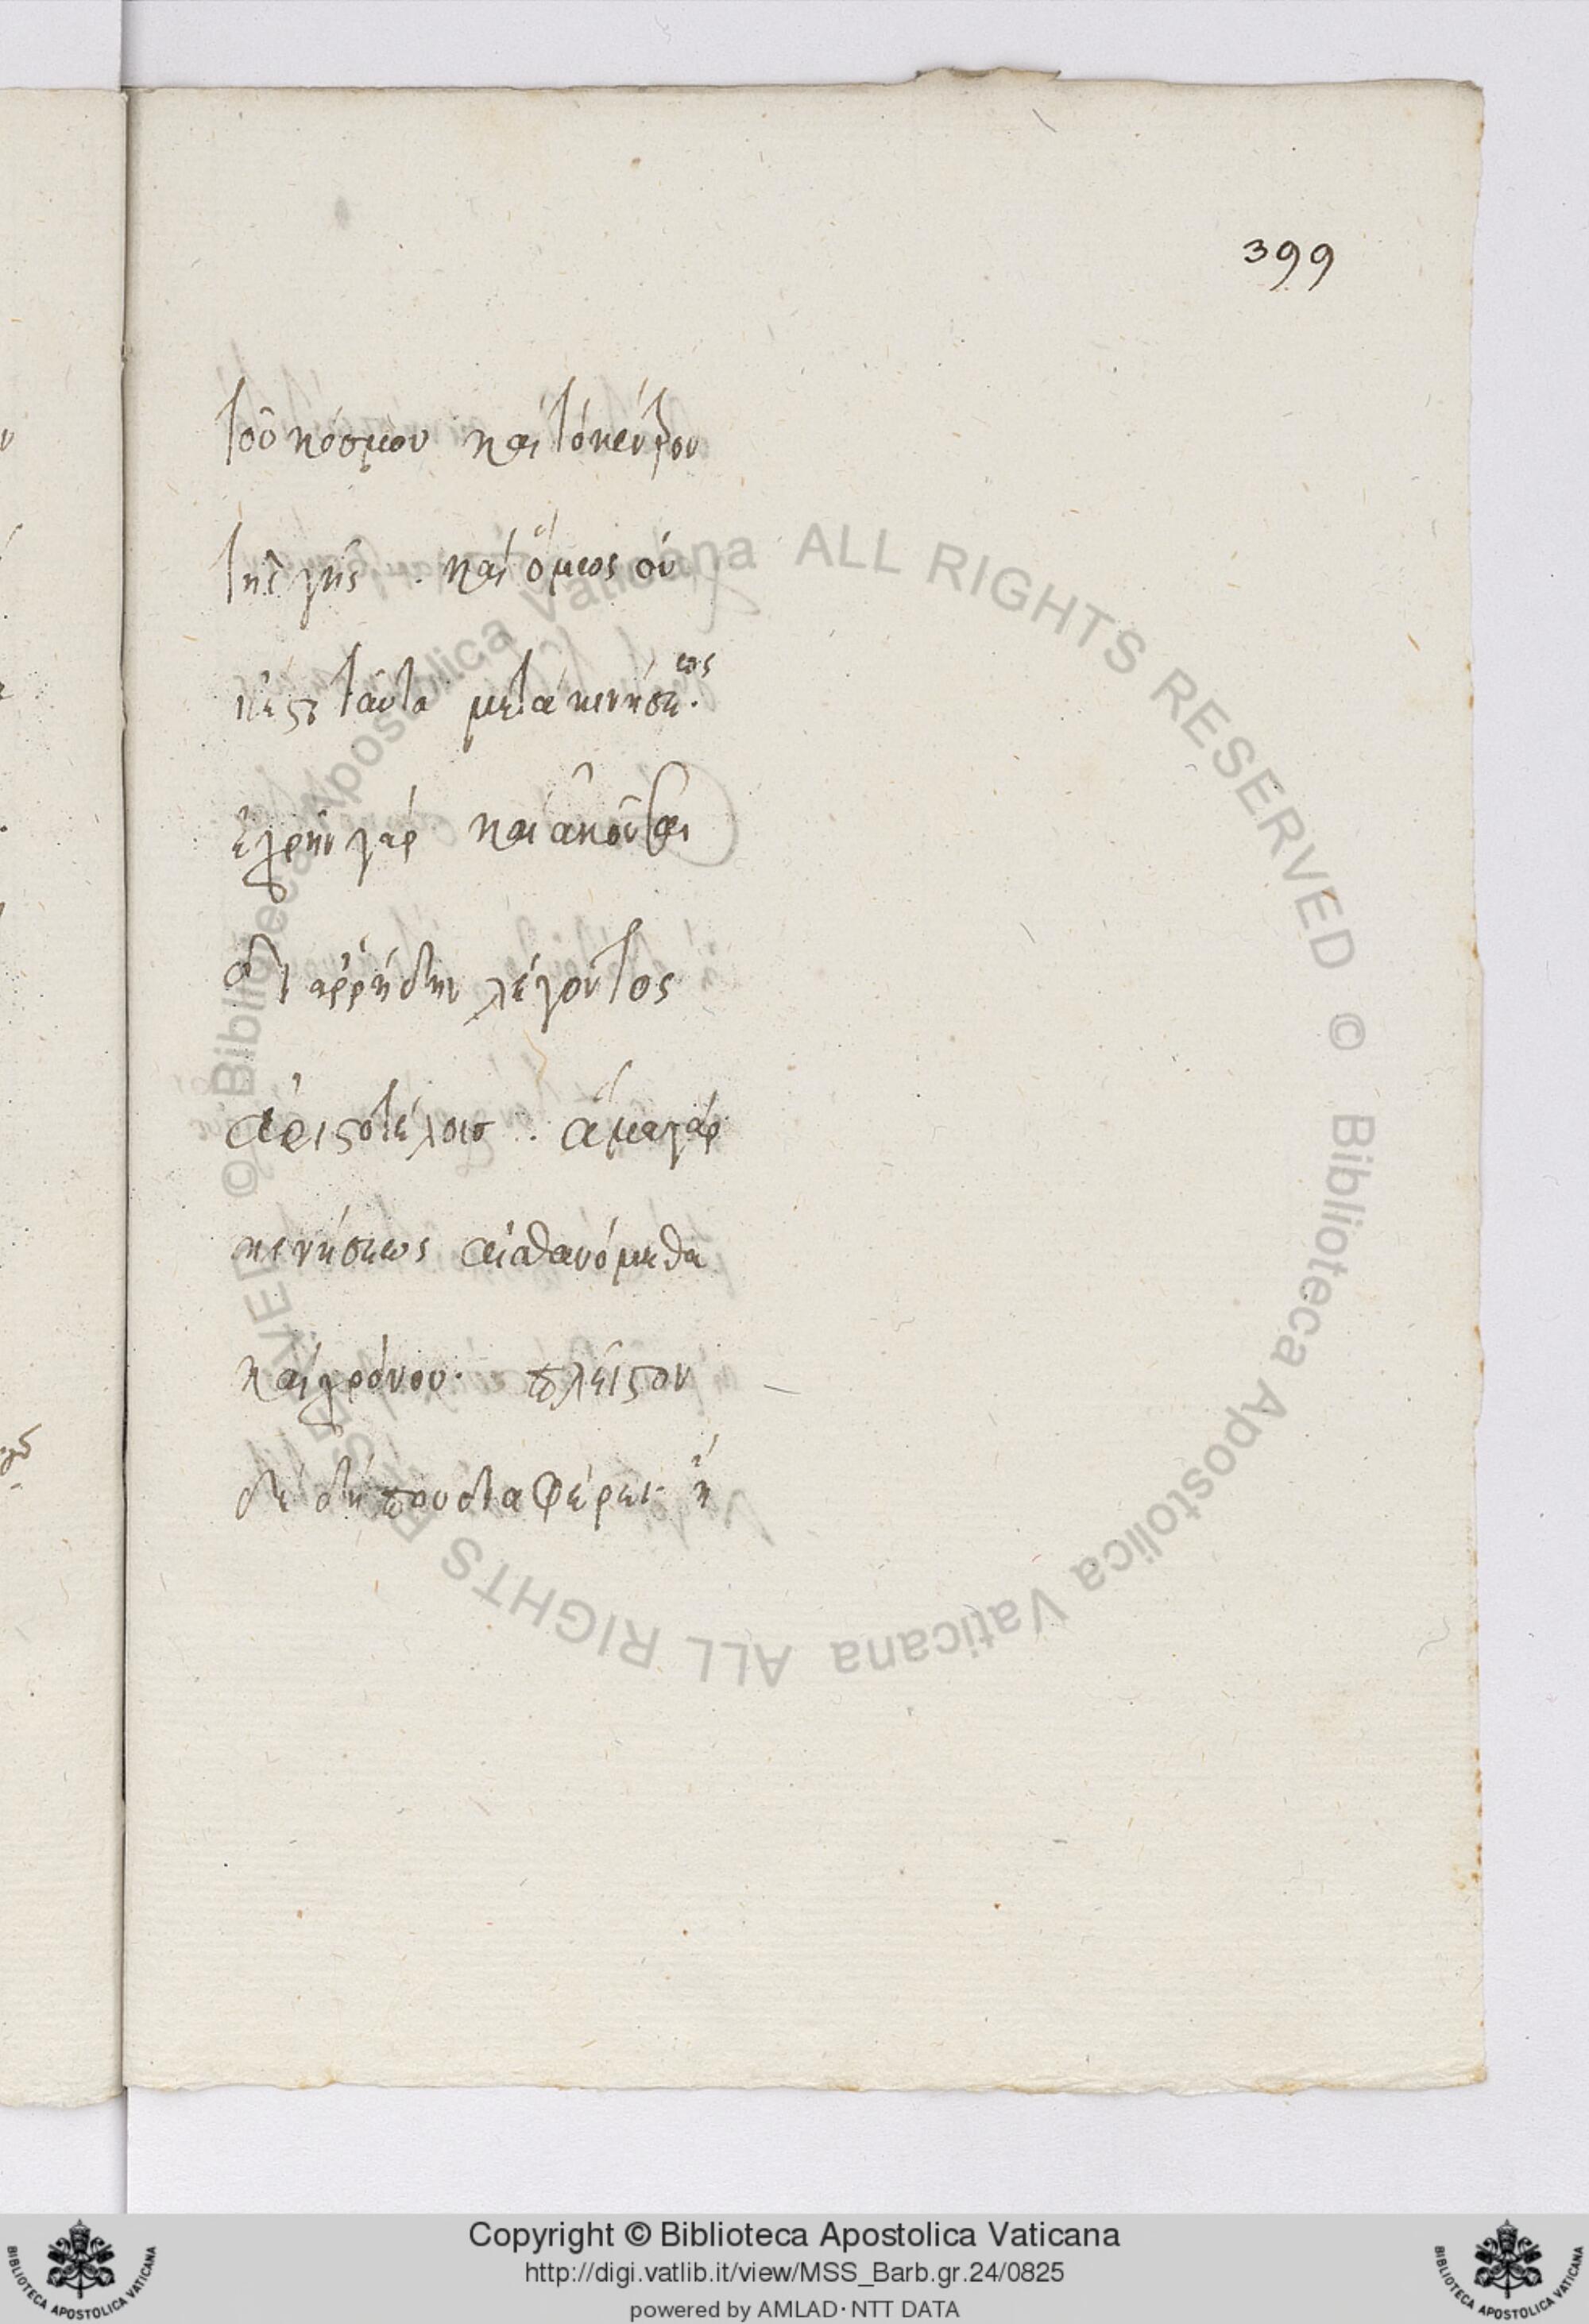 399
τοῦ κόσμου καὶ τὸ κέντρον
τῆς γῆς . καὶ ὅμως οὐ
ταῦτα μετὰ κινήσεως.
ἐχρῆν γὰρ καὶ ἀκοῦσαι
διαρρήδην λέγοντος
ἀριστοτέλους . ἅμα γὰρ
κινήσεως αἰσθανόμεθα
καὶ χρόνου. πλεῖστον
δὲ δήπου διαφέρει ἢ
© Biblioteca Apostolica Vaticana ALL RIGHTS RESERVED © Biblioteca Apostolica Vaticana ALL RIGHTS RESERVED
Copyright © Biblioteca Apostolica Vaticana
http://digi.vatlib.it/view/MSS_Barb.gr.24/0825
powered by AMLAD · NTT DATA
BIBLIOTECA APOSTOLICA VATICANA
BIBLIOTECA APOSTOLICA VATICANA